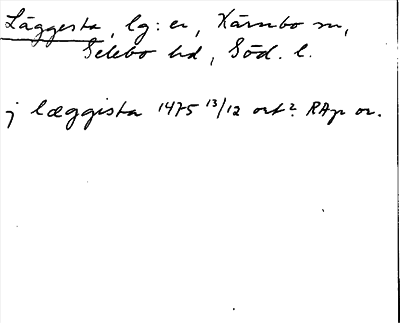 Läggesta, lg: er, Kärnbo sn,
Selebo hd, Söd. l.
j læggista 1475 13/12 ort? RAp or.